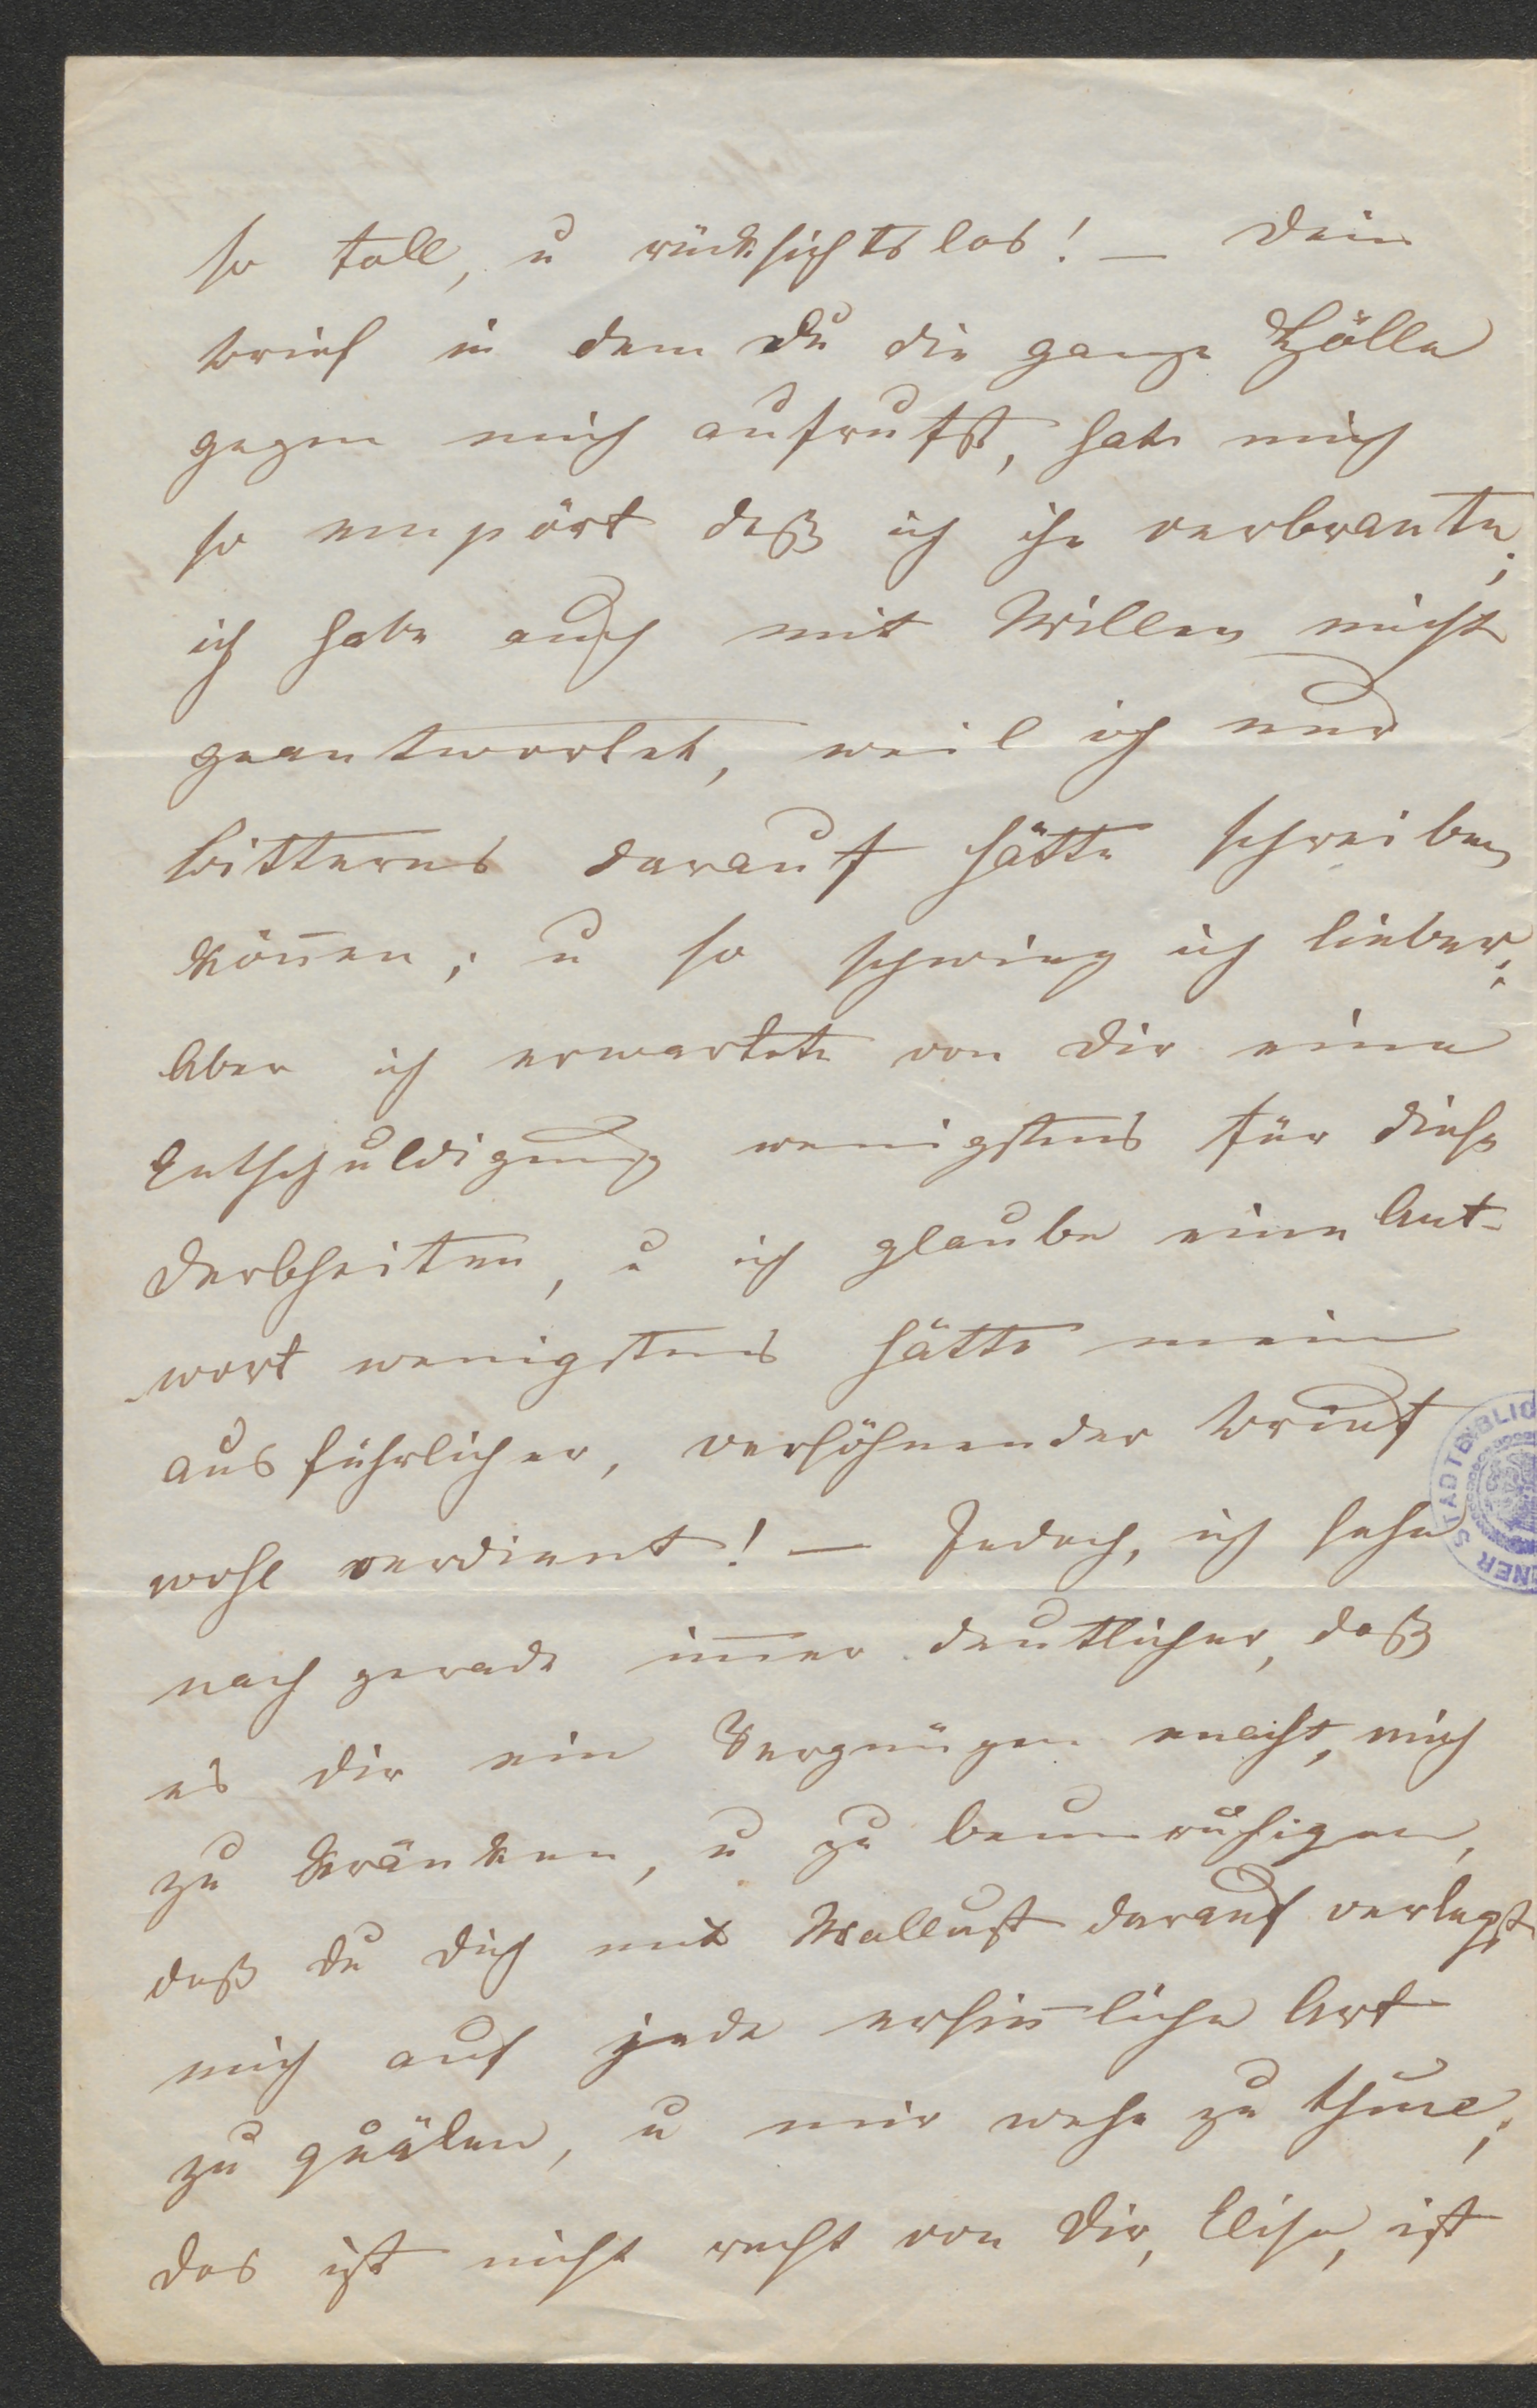 so toll, u rücksichtslos! — Dein
Brief in dem Du die ganze Hölle
gegen mich aufrufst, hate mich
so empört daß ich ihn verbrante;
ich habe auch mit Willen nicht
geantwortet, weil ich nur
Bitteres darauf hätte schreiben
kön̄en; u so schwieg ich lieber;
Aber ich erwartete von Dir eine
Entschuldigung wenigstens für diese
Derbheiten, u ich glaube eine Ant-
wort wenigstens hätte mein
ausführlicher, versöhnender Brief
wohl verdient! — Jedoch, ich sehe
nach gerade im̄er deutlicher, daß
es dir ein Vergnügen macht, mich
zu kränken, u zu beunruhigen,
daß du dich mit Wollust darauf verlegst
mich auf jede ersin̄liche Art
zu quälen, u mir wehe zu thun;
das ist nicht recht von Dir, Elise, ist